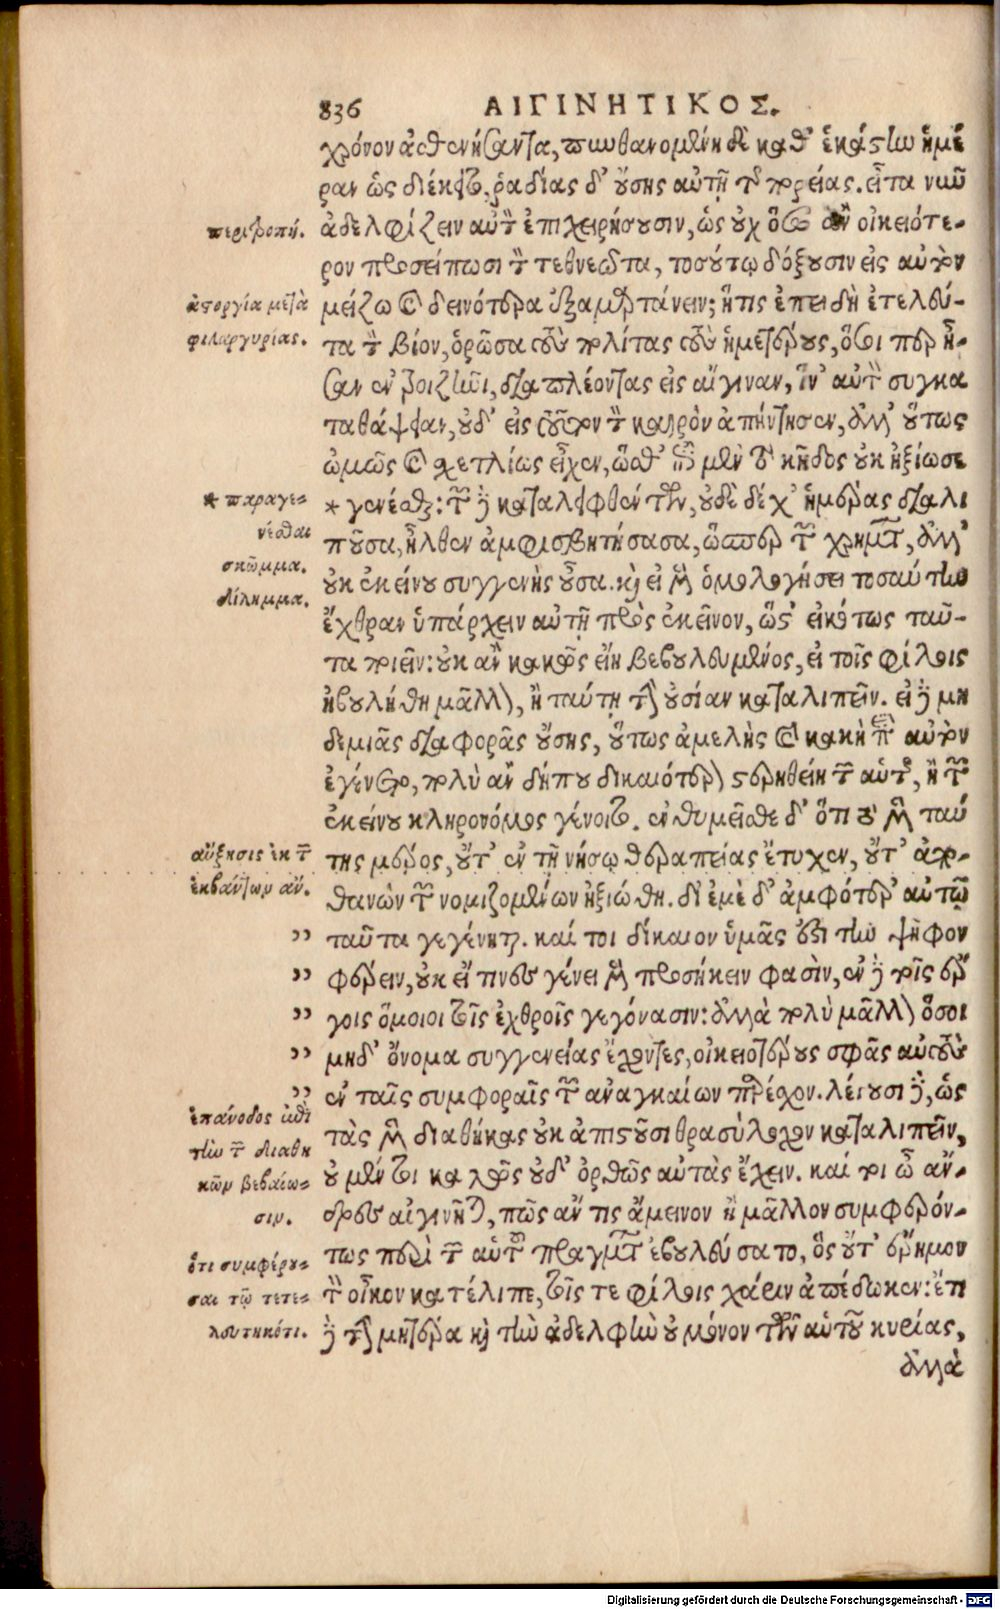 836 ΑΙΓΙΝΗΤΙΚΟΣ.
χρόνον ἀσθενήσαντα, πυνθανομένη δὲ καθ' ἑκάστην ἡμέ
ραν ὡς διέκειτο, ῥᾳδίας δ' οὔσης αὐτῇ τῆς πορείας. εἶτα νῦν
ἀδελφίζειν αὐτὸν ἐπιχειρήσουσιν, ὡς οὐχ ὅσῳ ἂν οἰκειότε-
ρον προσείπωσι τὸν τεθνεῶτα, τοσούτῳ δόξουσιν εἰς αὐτὸν
μείζω καὶ δεινότερα ἐξαμαρτάνειν; ἥτις ἐπειδὴ ἐτελεύ-
τα τὸν βίον, ὁρῶσα τοὺς πολίτας τοὺς ἡμετέρους, ὅσοι περ ἦ-
σαν ἐν Τροιζῆνι, διαπλέοντας εἰς αἴγιναν, ἵν' αὐτὸν συγκα
ταθάψειαν, οὐδ' εἰς τοῦτον τὸν καιρὸν ἀπήντησεν, ἀλλ' οὕτως
ὠμῶς καὶ σχετλίως εἶχεν, ὥσθ' ἐπὶ μὲν τὸ κῆδος οὐκ ἠξίωσε
* γενέσθαι: τῶν δὲ καταλειφθέντων, οὐδὲ δέχ' ἡμέρας διαλι
ποῦσα, ἦλθεν ἀμφισβητήσασα, ὥσπερ τῶν χρημάτων, ἀλλ'
οὐκ ἐκείνου συγγενὴς οὖσα. καὶ εἰ μὲν ὁμολογήσει τοσαύτην
ἔχθραν ὑπάρχειν αὐτῇ πρὸς ἐκεῖνον, ὥστ' εἰκότως ταῦ-
τα ποιεῖν: οὐκ ἂν κακῶς εἴη βεβουλευμένος, εἰ τοῖς φίλοις
ἠβουλήθη μᾶλλον, ἢ ταύτῃ τὴν οὐσίαν καταλιπεῖν. εἰ δὲ μη
δεμιᾶς διαφορᾶς οὔσης, οὕτως ἀμελὴς καὶ κακὴ περὶ αὐτὸν
ἐγένετο, πολὺ ἂν δήπου δικαιότερον στερηθείη τῶν αὑτῆς, ἢ τῶν
ἐκείνου κληρονόμος γένοιτο. ἐνθυμεῖσθε δ' ὅτι τὸ μὲν ταύ
της μέρος, οὔτ' ἐν τῇ νήσῳ θεραπείας ἔτυχεν, οὔτ' ἀπο-
θανὼν τῶν νομιζομένων ἠξιώθη. δι' ἐμὲ δ' ἀμφότερ' αὐτῷ
,, ταῦτα γεγένηται. καί τοι δίκαιον ὑμᾶς ἐστι τὴν ψῆφον
,, φέρειν, οὐκ εἴ τινες γένει μὲν προσήκειν φασὶν, ἐν δὲ τοῖς ἔρ
,, γοις ὅμοιοι τοῖς ἐχθροῖς γεγόνασιν: ἀλλὰ πολὺ μᾶλλον ὅσοι
,, μηδ' ὄνομα συγγενείας ἔχοντες, οἰκειοτέρους σφᾶς αὐτοὺς
,, ἐν ταῖς συμφοραῖς τῶν ἀναγκαίων παρέσχον. λέγουσι δὲ, ὡς
τὰς μὲν διαθήκας οὐκ ἀπιστοῦσι θρασύλοχον καταλιπεῖν,
οὐ μέντοι καλῶς οὐδ' ὀρθῶς αὐτὰς ἔχειν. καί τοι ὦ ἄν-
δρες αἰγινῆται, πῶς ἄν τις ἄμεινον ἢ μᾶλλον συμφερόν-
τως περὶ τῶν αὑτοῦ πραγμάτων ἐβουλεύσατο, ὃς οὔτ' ἔρημον
τὸν οἶκον κατέλιπε, τοῖς τε φίλοις χάριν ἀπέδωκεν: ἔτι
δὲ τὴν μητέρα καὶ τὴν ἀδελφὴν οὐ μόνον τῶν αὑτοῦ κυρίας,
ἀλλὰ
περιτροπή.
ἀστοργία μετὰ
φιλαργυρίας.
* παραγε-
νέσθαι
σκῶμμα.
δίλημμα.
αὔξησις ἐκ τῶν
ἐκβάντων ἄν.
ἐπάνοδος ἐπὶ
τὴν τῶν διαθη
κῶν βεβαίω-
σιν.
ὅτι συμφέρου-
σαι τῷ τετε-
λευτηκότι.
Digitalisierung gefördert durch die Deutsche Forschungsgemeinschaft - DFG